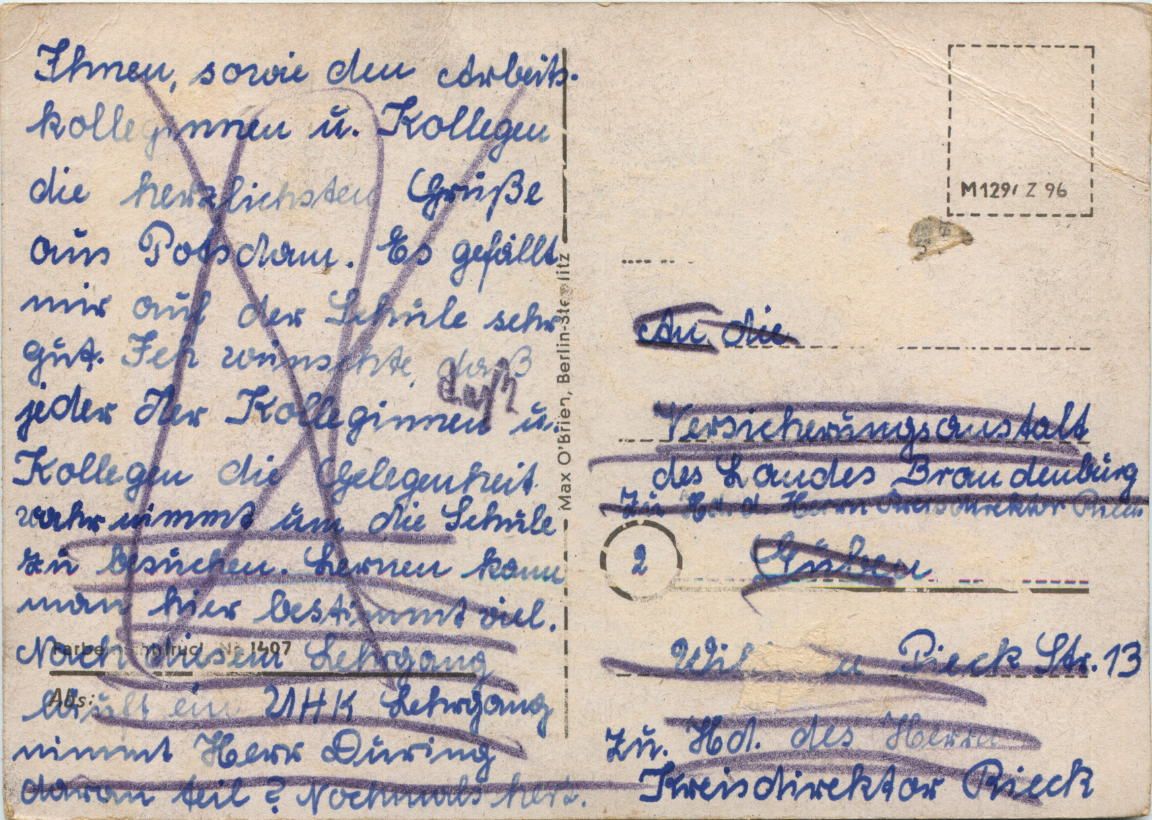 Ihnen, sowie den Arbeits-
kolleginnen u. Kollegen
die herzlichsten Grüße
aus Potsdam. Es gefällt
mir auf der Schule sehr
gut. Ich wünschte, daß
daß
jeder der Kolleginnen u.
Kollegen die Gelegenheit
wahrnimmt um die Schule
zu besuchen. Lernen kann
man hier bestimmt viel.
Nach diesem Lehrgang
läuft ein UHK Lehrgang
nimmt Herr Düring
daran teil? Nochmals herz.
Nr. 1407
Abs.:
Max O'Brien, Berlin-Steglitz
M129 Z 96
An die
Versicherungsanstalt
des Landes Brandenburg
zu Hd. d. Herrn Kreisdirektor Rieck
2
Guben
Pieck Str. 13
zu. Hd. des Herrn
Kreisdirektor Rieck